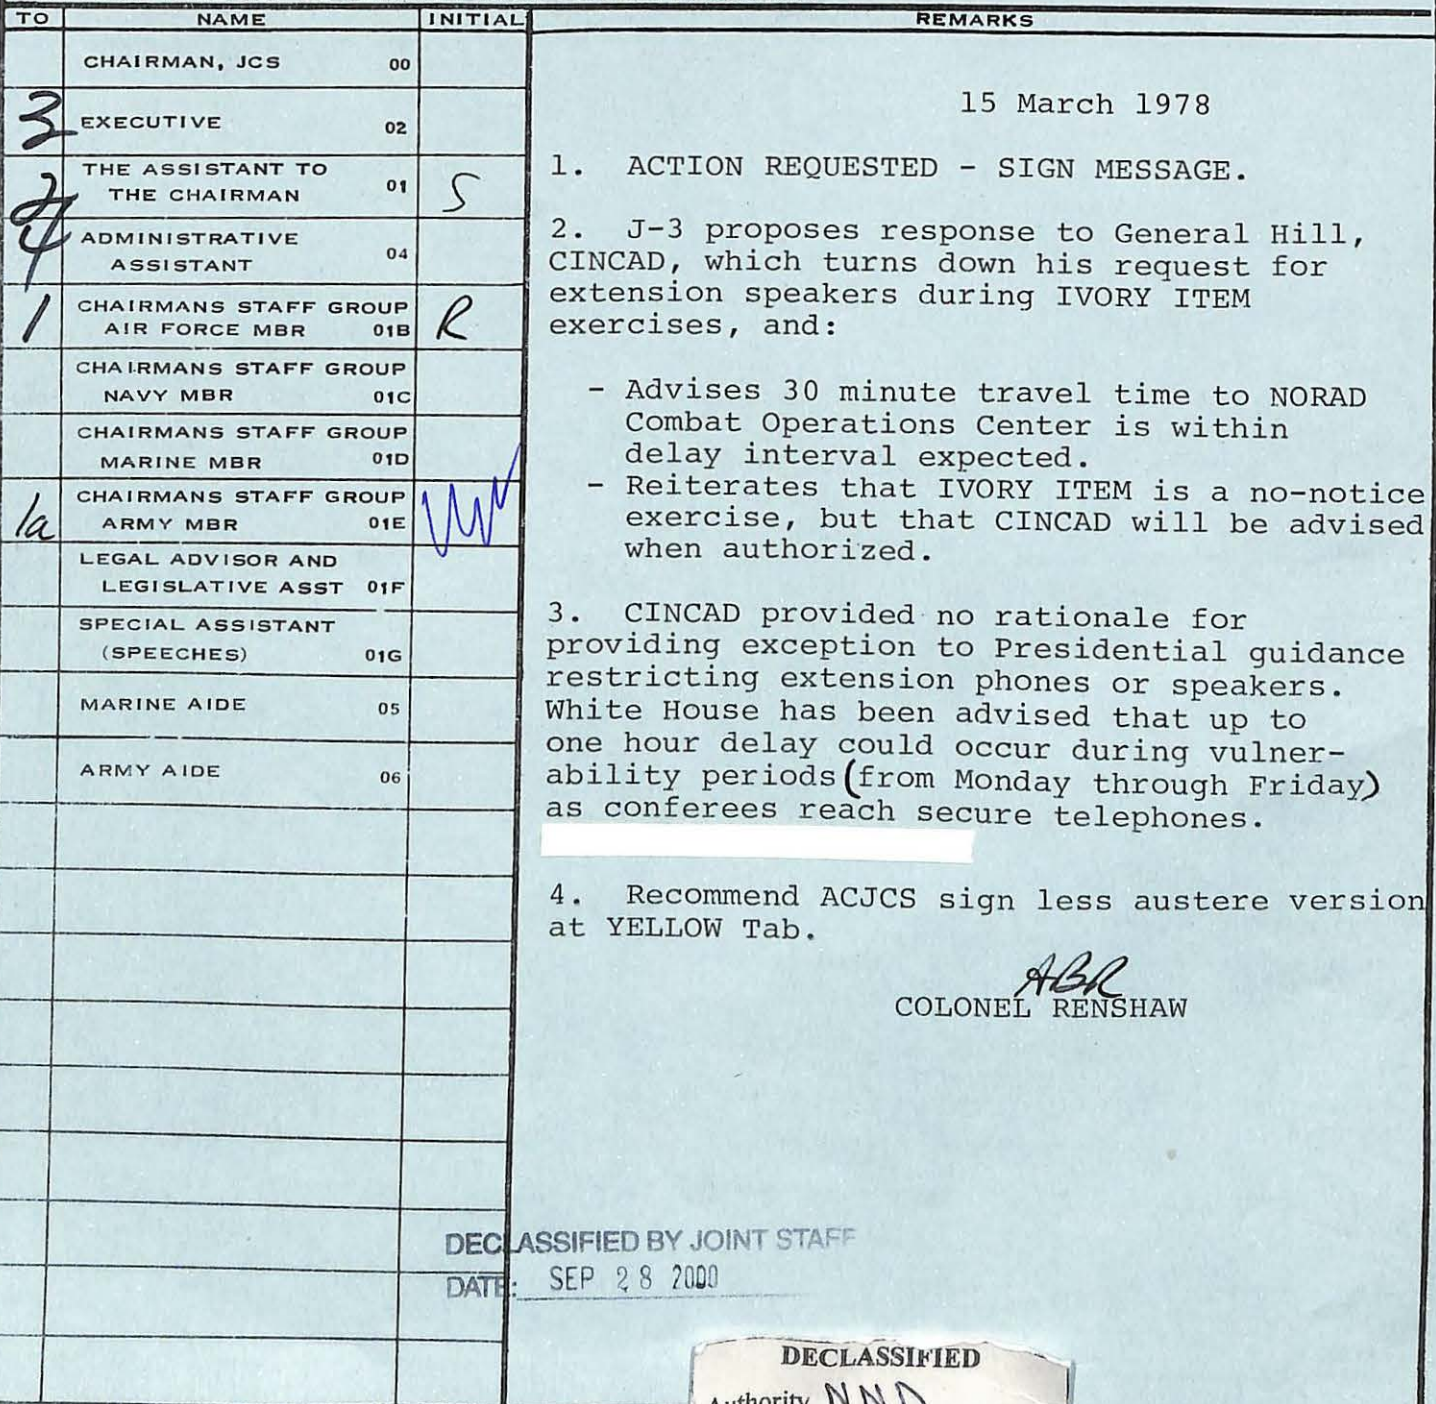 TO NAME INITIAL REMARKS
CHAIRMAN, JCS 00
3 EXECUTIVE 02
2 THE ASSISTANT TO
THE CHAIRMAN 01 S
4 ADMINISTRATIVE
ASSISTANT 04
1 CHAIRMANS STAFF GROUP
AIR FORCE MBR 01B R
CHAIRMANS STAFF GROUP
NAVY MBR 01C
CHAIRMANS STAFF GROUP
MARINE MBR 01D
1a CHAIRMANS STAFF GROUP
ARMY MBR 01E
LEGAL ADVISOR AND
LEGISLATIVE ASST 01F
SPECIAL ASSISTANT
(SPEECHES) 01G
MARINE AIDE 05
ARMY AIDE 06
15 March 1978
1. ACTION REQUESTED - SIGN MESSAGE.
2. J-3 proposes response to General Hill,
CINCAD, which turns down his request for
extension speakers during IVORY ITEM
exercises, and:
- Advises 30 minute travel time to NORAD
Combat Operations Center is within
delay interval expected.
- Reiterates that IVORY ITEM is a no-notice
exercise, but that CINCAD will be advised
when authorized.
3. CINCAD provided no rationale for
providing exception to Presidential guidance
restricting extension phones or speakers.
White House has been advised that up to
one hour delay could occur during vulner-
ability periods (from Monday through Friday)
as conferees reach secure telephones.
4. Recommend ACJCS sign less austere version
at YELLOW Tab.
ABR
COLONEL RENSHAW
DECLASSIFIED BY JOINT STAFF
DATE: SEP 28 2000
DECLASSIFIED
Authority NND